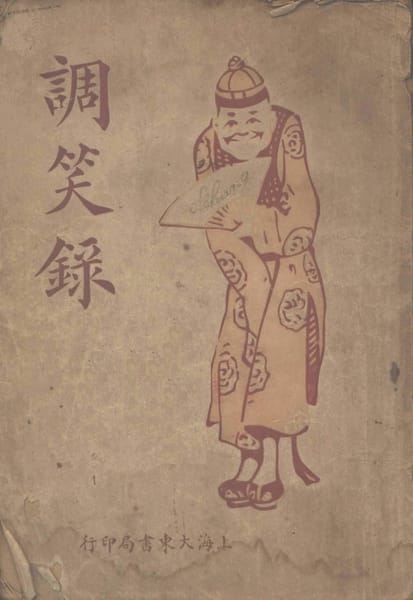 調笑錄
上海大東書局印行